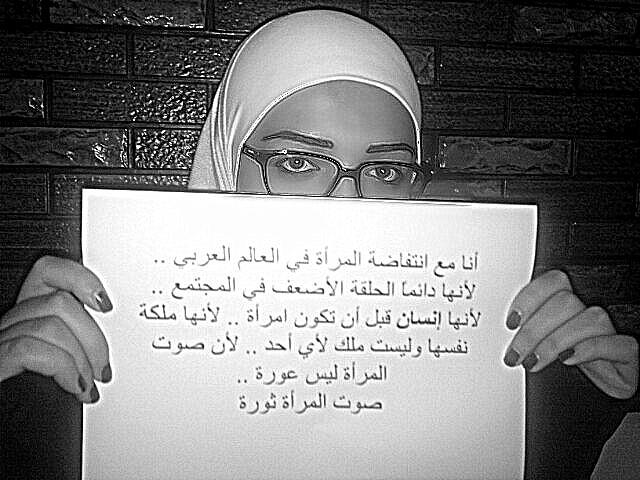 أنا مع انتفاضة المرأة في العالم العربي ..
لأنها دائماً الحلقة الأضعف في المجتمع ..
لأنها إنسان قبل أن تكون امرأة .. لأنها ملكة
نفسها وليست ملك لأي أحد .. لأن صوت
المرأة ليس عورة ..
صوت المرأة ثورة